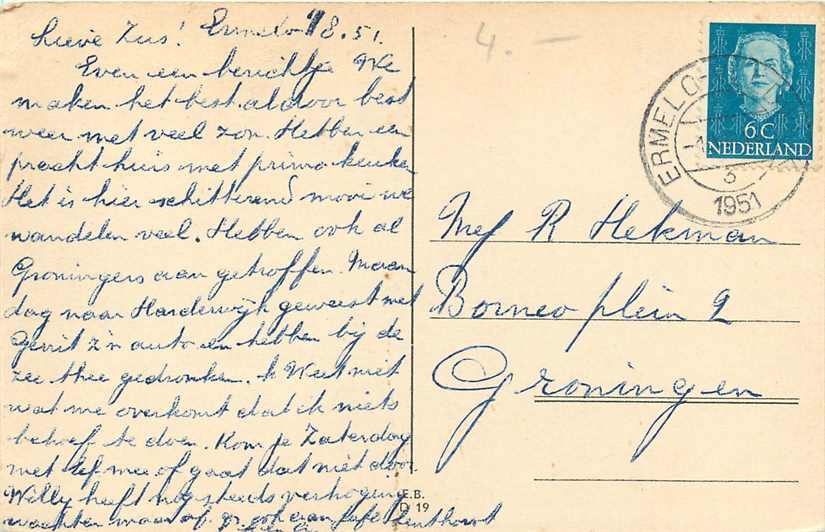 Lieve Zus! Ermelo 1 8.51.
Even een berichtje We
maken het best. aldoor best
weer met veel zon. Hebben een
pracht huis met prima keuken
Het is hier schitterend mooi we
wandelen veel. Hebben ook al
Groningers aan getroffen. Maan
dag naar Harderwijk geweest met
Gerrit z'n auto en hebben bij de
zee thee gedronken. k Weet niet
wat me overkomt dat ik niets
behoef te doen. Kom je Zaterdag
met mee of gaat dat niet door
Willy heeft nog steeds verhoging
wachten maar of er ook aan
4.-
ERMELO
1951
6C
NEDERLAND
Mej R Hekman
Borneo plein 2
Groningen
E.B.
D 19